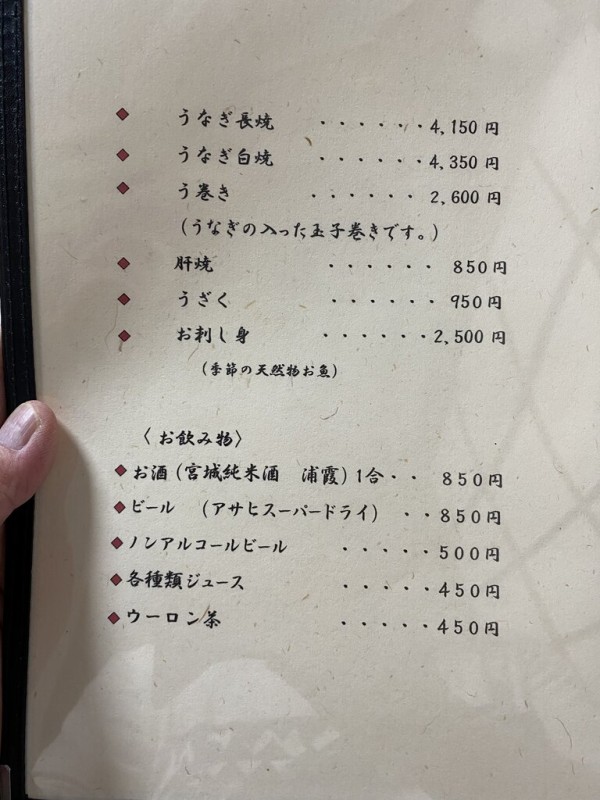 ◆ うなぎ長焼 ・・・・・・4,150 円
◆ うなぎ白焼 ・・・・・・4,350 円
◆ う巻き ・・・・・・ 2,600 円
(うなぎの入った玉子巻きです。)
◆ 肝焼 ・・・・・・ 850円
◆ うざく ・・・・・・ 950円
◆ お刺し身 ・・・・・・2,500 円
(季節の天然物お魚)
〈お飲み物〉
◆お酒(宮城純米酒 浦霞)1合・・ 850円
◆ビール (アサヒスーパードライ) ・・850円
◆ノンアルコールビール ・・・・・500円
◆各種類ジュース ・・・・・450円
◆ウーロン茶 ・・・・・450円